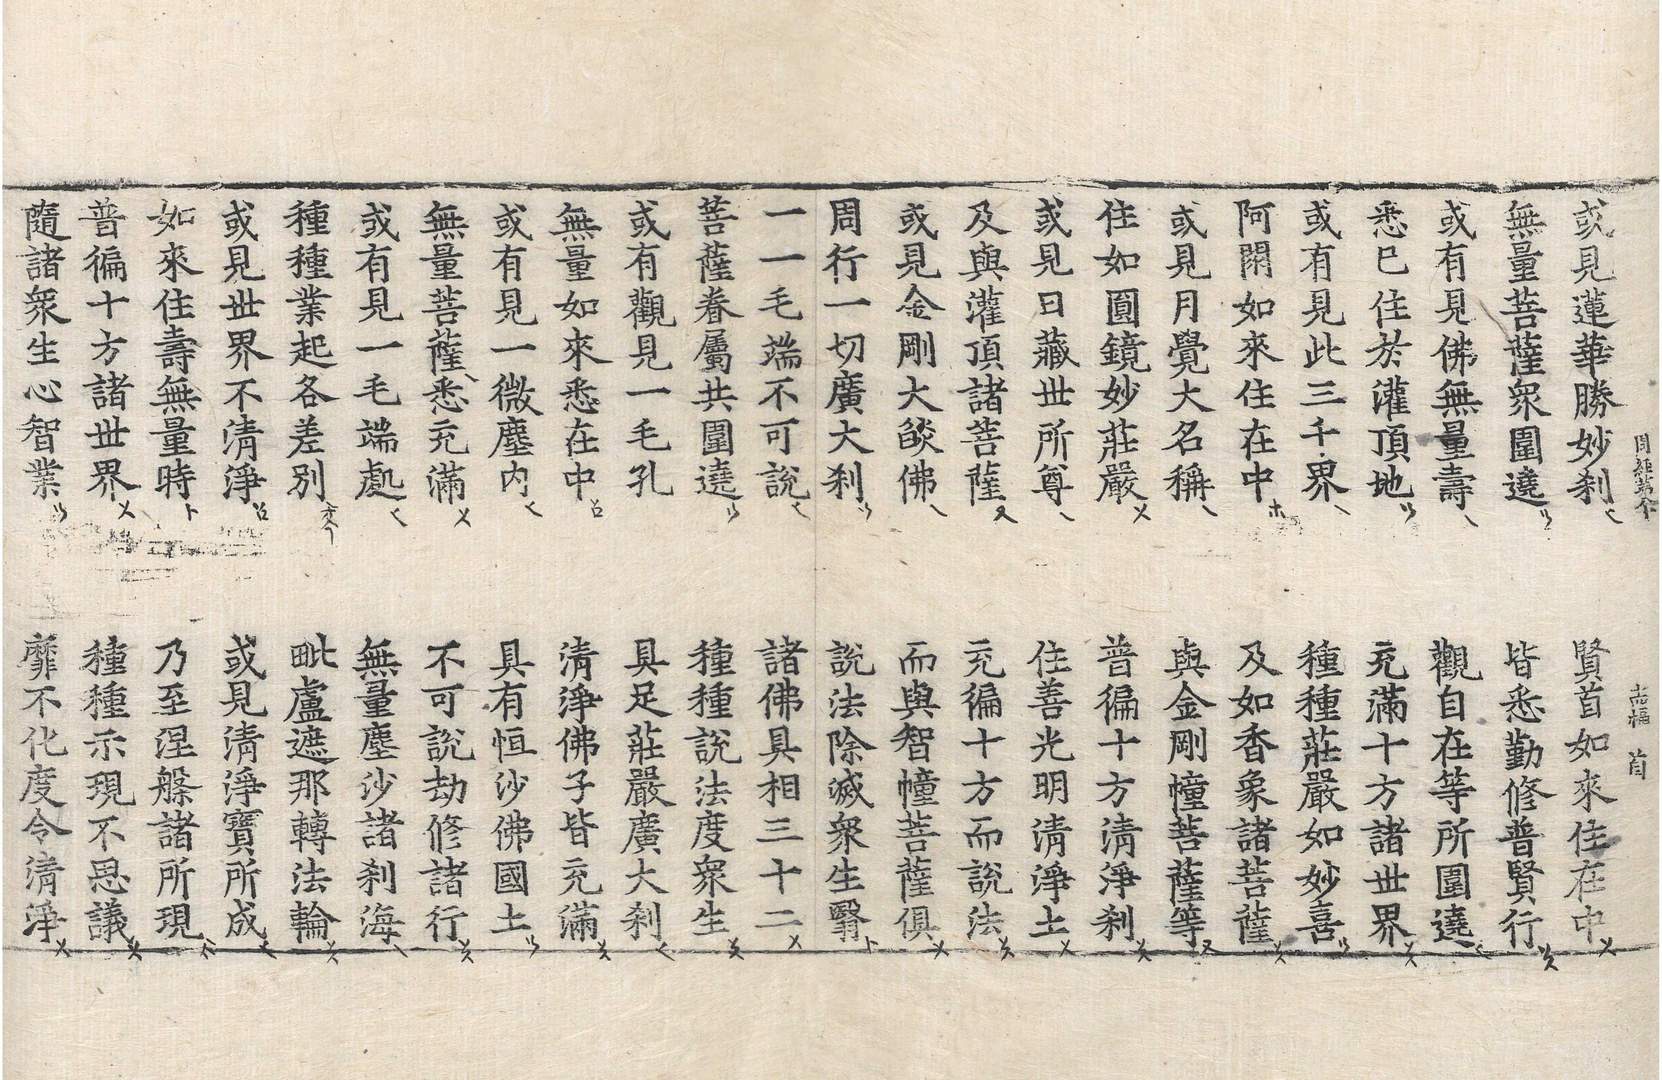 或見蓮華勝妙刹 賢首如來住在中
無量菩薩衆圍遶 皆悉勤修普賢行
或有見佛無量壽 觀自在等所圍遶
悉已住於灌頂地 充滿十方諸世界
或有見此三千界 種種莊嚴如妙喜
阿閦如來住在中 及如香象諸菩薩
或見月覺大名稱 與金剛幢菩薩等
住如圓鏡妙莊嚴 普徧十方清淨刹
或見日藏世所尊 住善光明清淨土
及與灌頂諸菩薩 充徧十方而說法
或見金剛大燄佛 而與智幢菩薩俱
周行一切廣大刹 說法除滅衆生翳
一一毛端不可說 諸佛具相三十二
菩薩眷屬共圍遶 種種說法度衆生
或有觀見一毛孔 具足莊嚴廣大刹
無量如來悉在中 清淨佛子皆充滿
或有見一微塵内 具有恒沙佛國土
無量菩薩悉充滿 不可說劫修諸行
或有見一毛端處 無量塵沙諸刹海
種種業起各差別 毗盧遮那轉法輪
或見世界不清淨 或見清淨寶所成
如來住壽無量時 乃至涅槃諸所現
普徧十方諸世界 種種示現不思議
隨諸衆生心智業 靡不化度令清淨